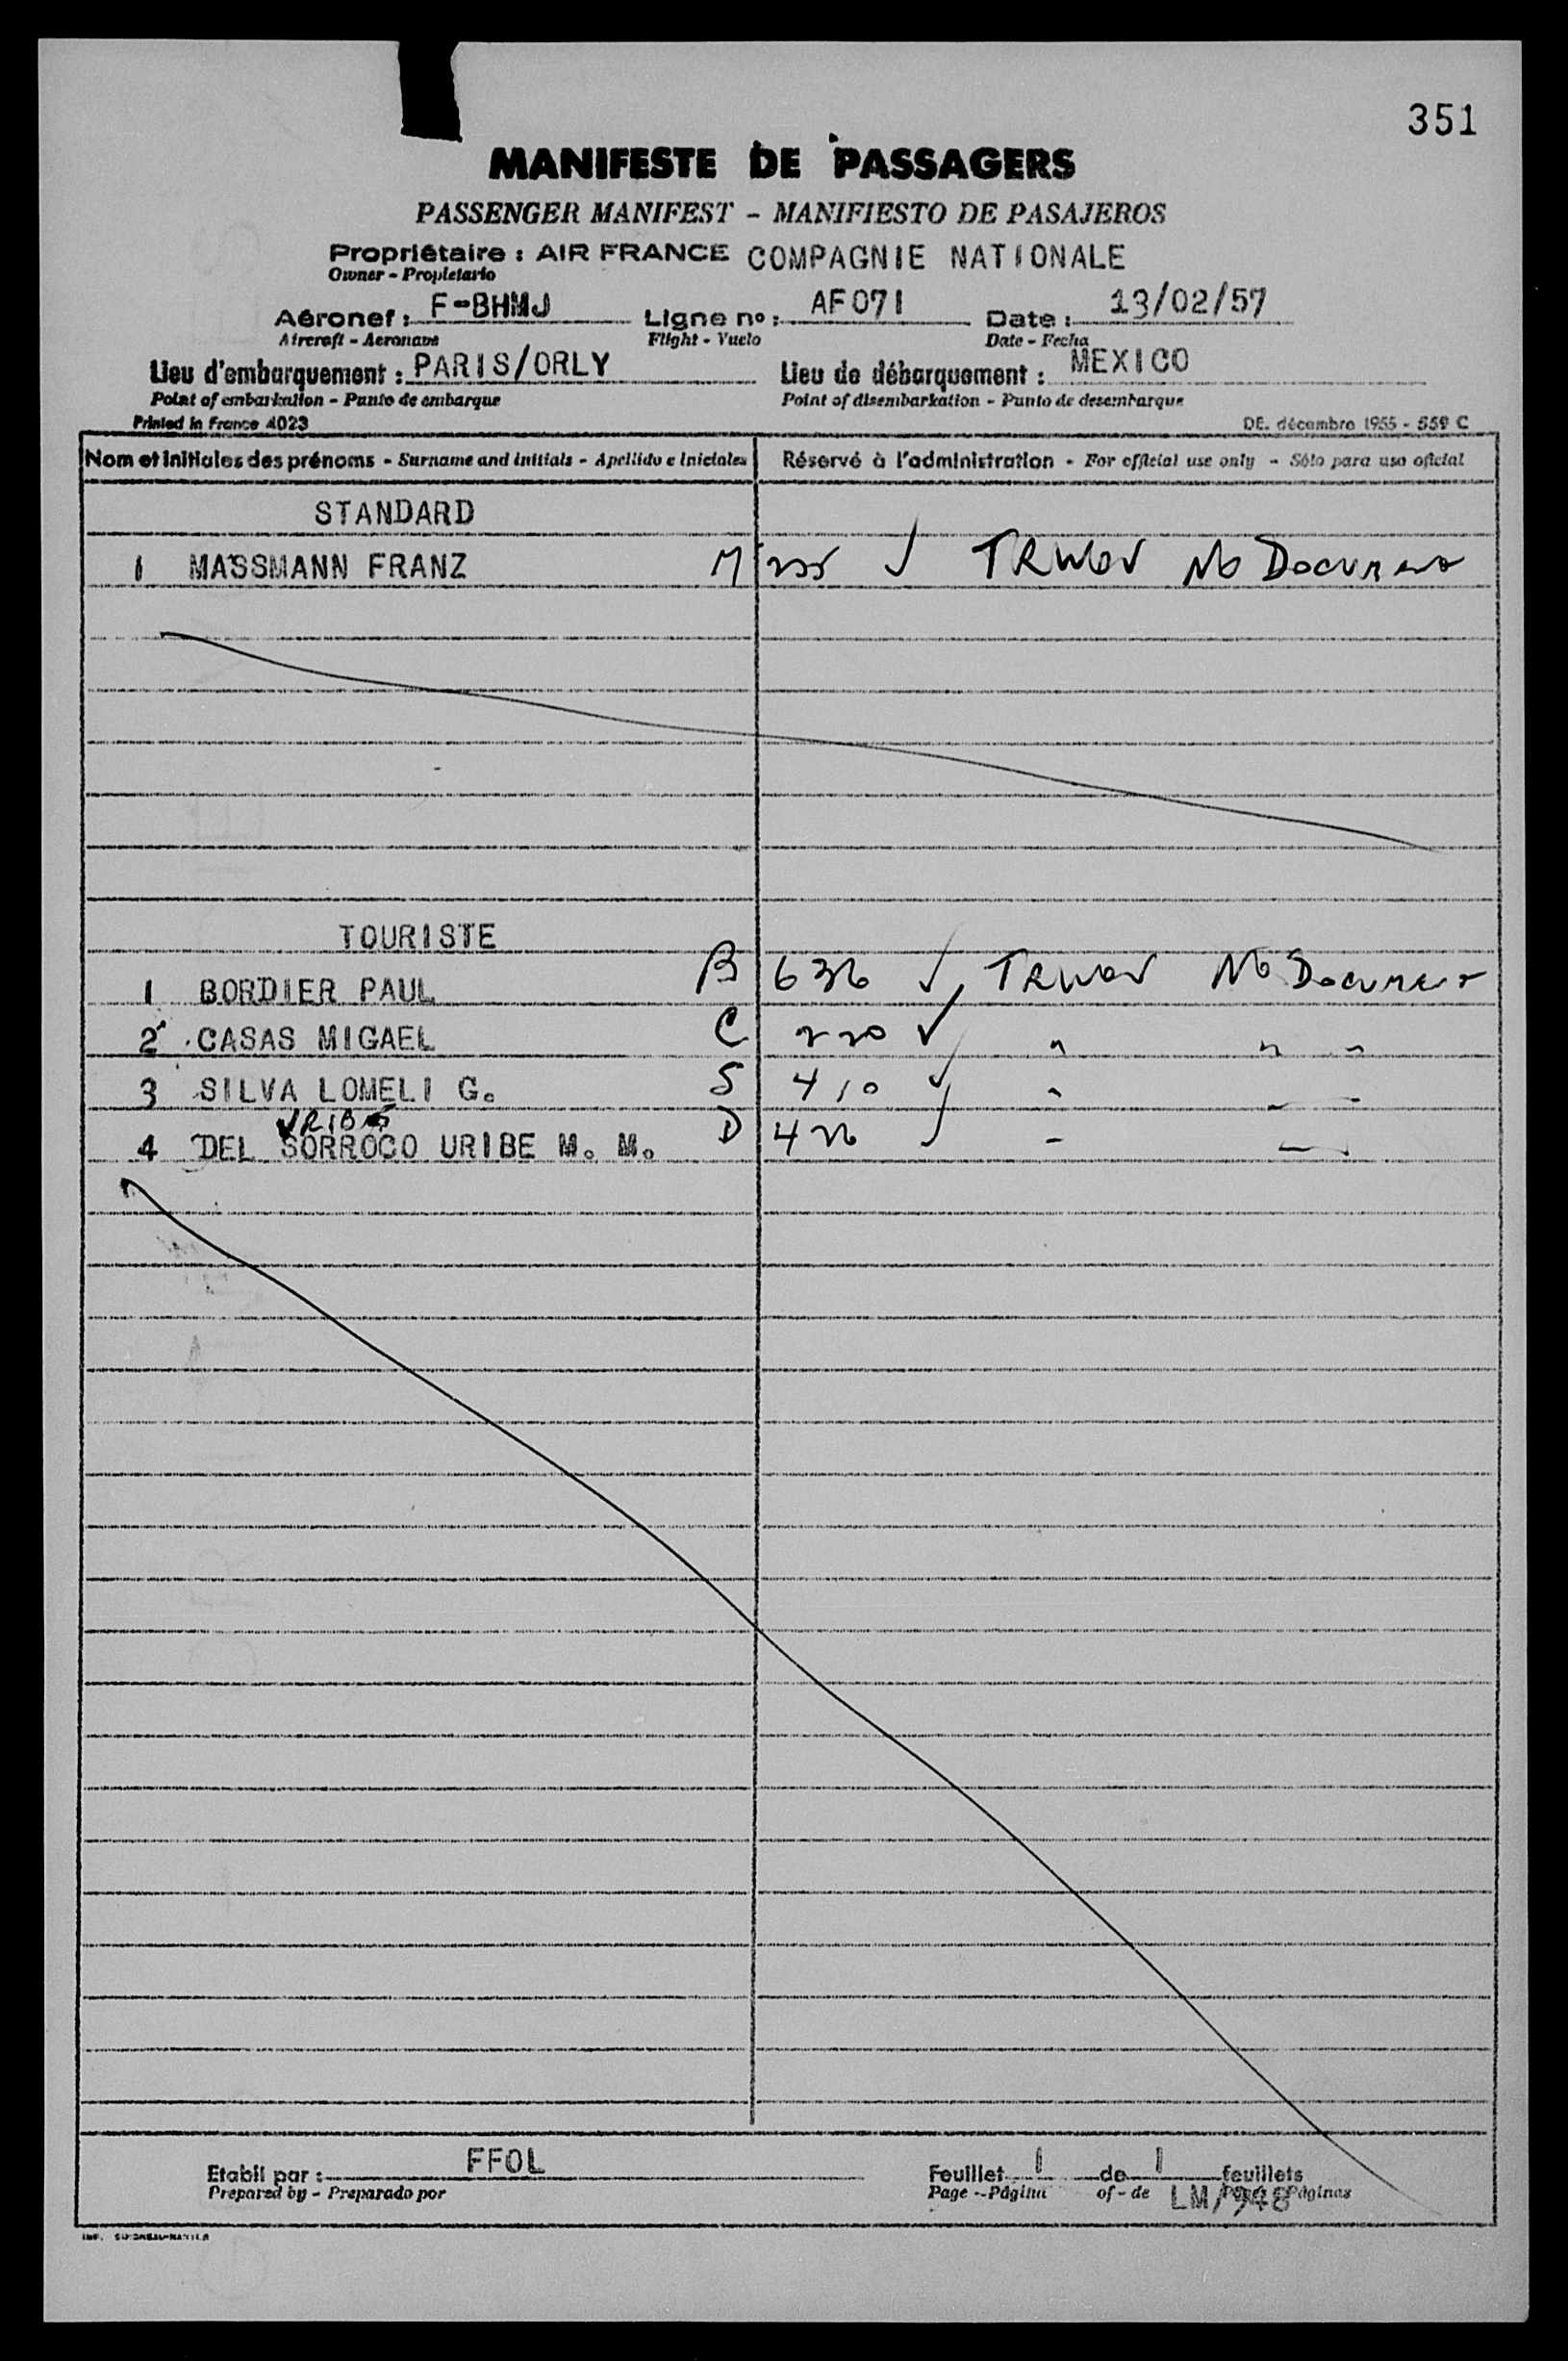 351
MANIFESTE DE PASSAGERS
PASSENGER MANIFEST - MANIFIESTO DE PASAJEROS
Propriétaire : AIR FRANCE COMPAGNIE NATIONALE
Owner - Propietario
Aéronef : F-BHMJ Ligne no : AF071 Date : 13/02/57
Aircraft - Aeronave Flight - Vuelo Date - Fecha
Lieu d'embarquement : PARIS/ORLY Lieu de débarquement : MEXICO
Point of embarkation - Punto de embarque Point of disembarkation - Punto de desembarque
Printed in France 4023 DE. décembre 1955 - 559 C
Nom et initiales des prénoms - Surname and initials - Apellido e iniciales Réservé à l'administration - For official use only - Sólo para uso oficial
STANDARD
1 MASSMANN FRANZ M 255 ✓ TRWOV No Document
TOURISTE
1 BORDIER PAUL B 636 ✓ TRWOV No Document
2 CASAS MIGAEL C 220 ✓ " " "
3 SILVA LOMELI G. S 410 ✓ "
URIBE
4 DEL SORROCO URIBE M. M. D 426 ✓
Etabli par : FFOL Feuillet 1 de 1 feuillets
Prepared by - Preparado por Page - Página of - de LM/948 Páginas